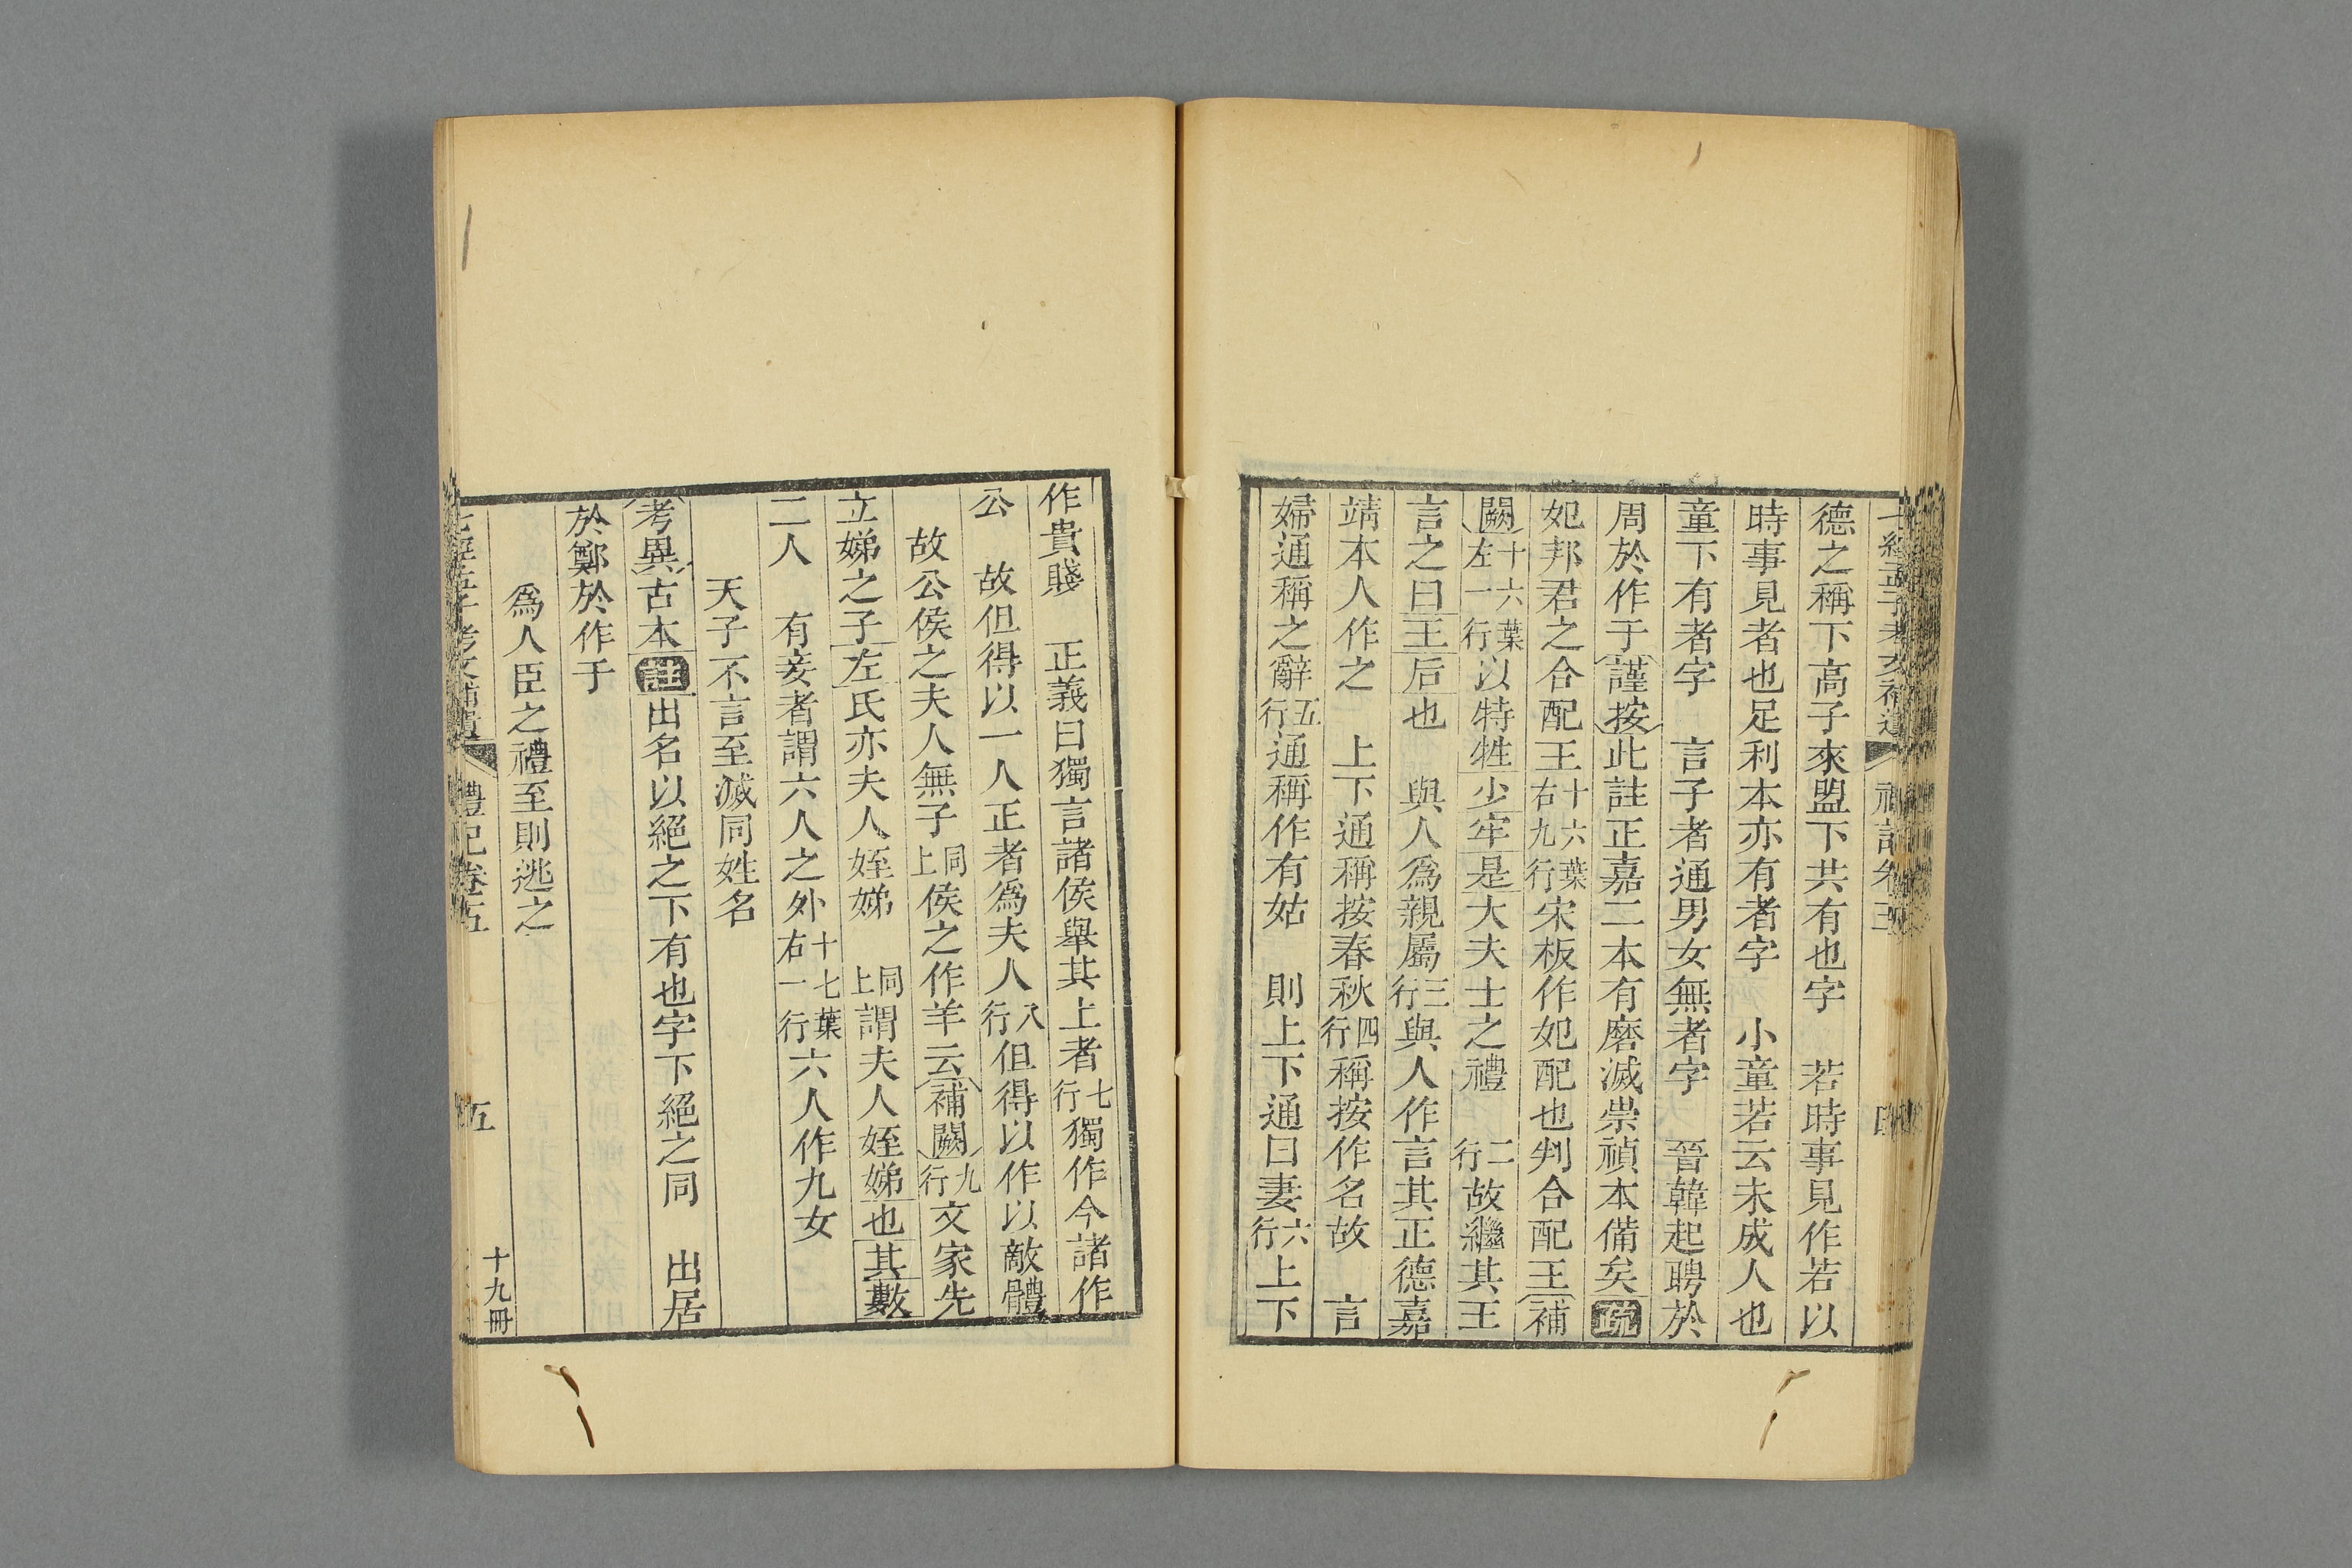 七經孟子考文補遺 禮記卷五 四
德之稱下高子來盟下共有也字 若時事見作若以
時事見者也足利本亦有者字 小童若云未成人也
童下有者字 言子者通男女無者字 晉韓起聘於
周於作于謹按此註正嘉二本有磨滅崇禎本備矣疏
妃邦君之合配王十六葉右九行宋板作妃配也判合配王補
闕十六葉左一行以特牲少牢是大夫士之禮 二行故繼其王
言之曰王后也 與人爲親屬三行與人作言其正德嘉
靖本人作之 上下通稱按春秋四行稱按作名故 言
婦通稱之辭五行通稱作有姑 則上下通曰妻六行上下
作貴賤 正義曰獨言諸侯舉其上者七行獨作今諸作
公 故但得以一人正者爲夫人八行但得以作以敵體
故公侯之夫人無子同上侯之作羊云補闕九行文家先
立娣之子左氏亦夫人姪娣 同上謂夫人姪娣也其數
二人 有妾者謂六人之外十七葉右一行六人作九女
天子不言至滅同姓名
考異古本註出名以絕之下有也字下絕之同 出居
於鄭於作于
爲人臣之禮至則逃之
七經孟子考文補遺 禮記卷五 五 十九冊